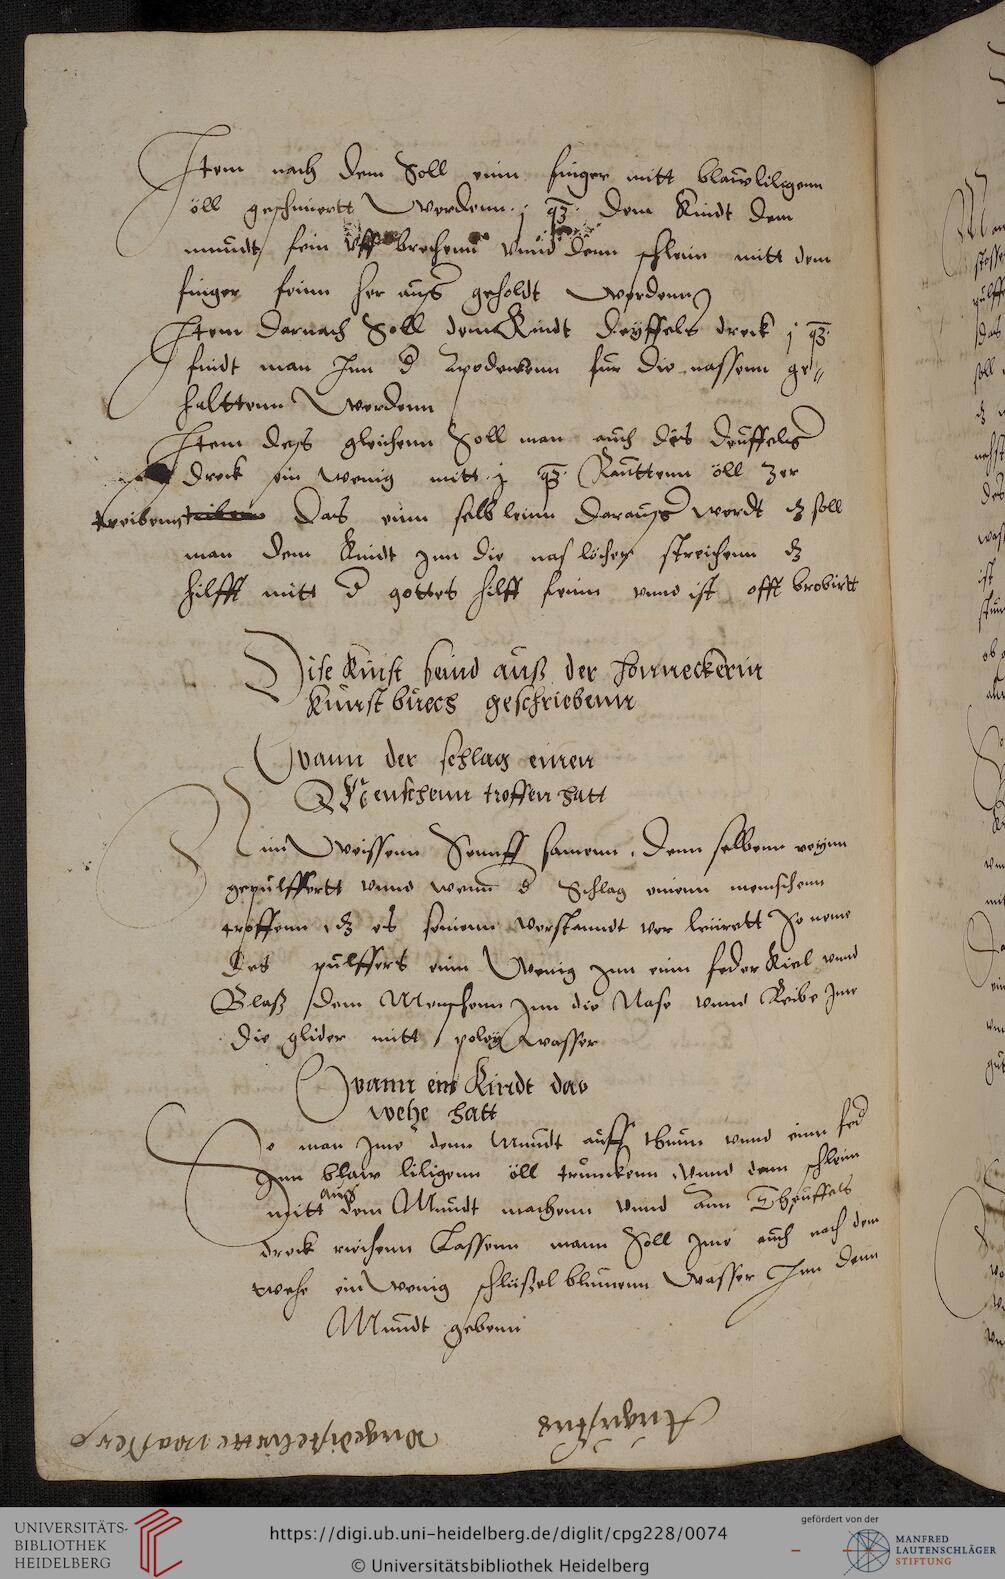 Item nach dem Soll einn finger mitt blawliligenn
öll geschmiertt Werdenn j qz dem Kindt den
mundt fein uff brechenn vnnd denn schleim mitt dem
finger feinn her auß geholdt werdenn
Item darnach Soll dem Kindt deyffels dreck j qz
findt man Inn d Apodeckenn fur die nassenn ge„
halttenn Werdenn
Item deß gleichenn Soll man auch des deuffels
dreck ein wenig mitt j qz Rauttenn öll zer
treibenn das einn selblein darauß werdt dz soll
man dem Kindt Inn die naslöcher streichenn dz
hilfft mitt d gottes hilff feinn vnnd ist offt brobirtt
Dise Kunst seind auß der Horneckerin
Kunst buechs geschriebenn
Wann der schlag einen
Menschenn troffen hatt
Nim Weissenn Sennff samenn denn selbenn reynn
gepulffertt vnnd wenn d Schlag einenn menschenn
troffenn dz es seinenn verstanndt ver leurett So neme
des pulffers einn Wenig Inn einn feder Kiel vnnd
Blaß dem Menschenn Inn die Nase vnnd Reibe Ime
die glider mitt poley wasser
Wann ein Kindt das
wehe hatt
So man Ime denn Mundt auff thun vnnd einn fed
Inn blaw liligenn öll truncken vnnd denn schleim
mitt auß dem Mundt machenn vnnd ann Theuffels
dreck riechenn Lassenn mann Soll Ime auch nach dem
wehe ein Wenig schlüßelblumenn Wasser Inn denn
Mundt gebenn
Augustus
wasser
UNIVERSITÄTS-
BIBLIOTHEK
HEIDELBERG
https://digi.ub.uni-heidelberg.de/diglit/cpg228/0074
© Universitätsbibliothek Heidelberg
gefördert von der
MANFRED
LAUTENSCHLÄGER
STIFTUNG